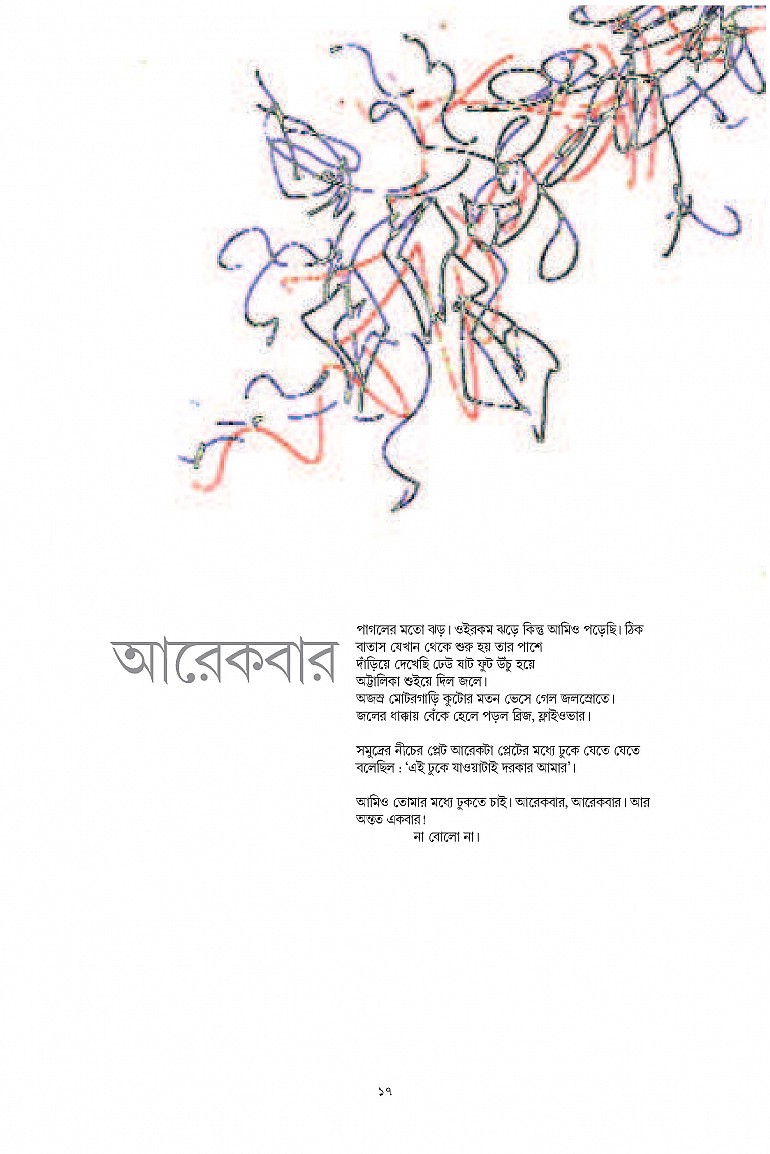 আরেকবার
পাগলের মতো ঝড়। ওইরকম ঝড়ে কিন্তু আমিও পড়েছি। ঠিক
বাতাস যেখান থেকে শুরু হয় তার পাশে
দাঁড়িয়ে দেখেছি ঢেউ ষাট ফুট উঁচু হয়ে
অট্টালিকা শুইয়ে দিল জলে।
অজস্র মোটরগাড়ি কুটোর মতন ভেসে গেল জলস্রোতে।
জলের ধাক্কায় বেঁকে হেলে পড়ল ব্রিজ, ফ্লাইওভার।
সমুদ্রের নীচের প্লেট আরেকটা প্লেটের মধ্যে ঢুকে যেতে যেতে
বলেছিল : ‘এই ঢুকে যাওয়াটাই দরকার আমার’।
আমিও তোমার মধ্যে ঢুকতে চাই। আরেকবার, আরেকবার। আর
অন্তত একবার!
না বোলো না।
১৭